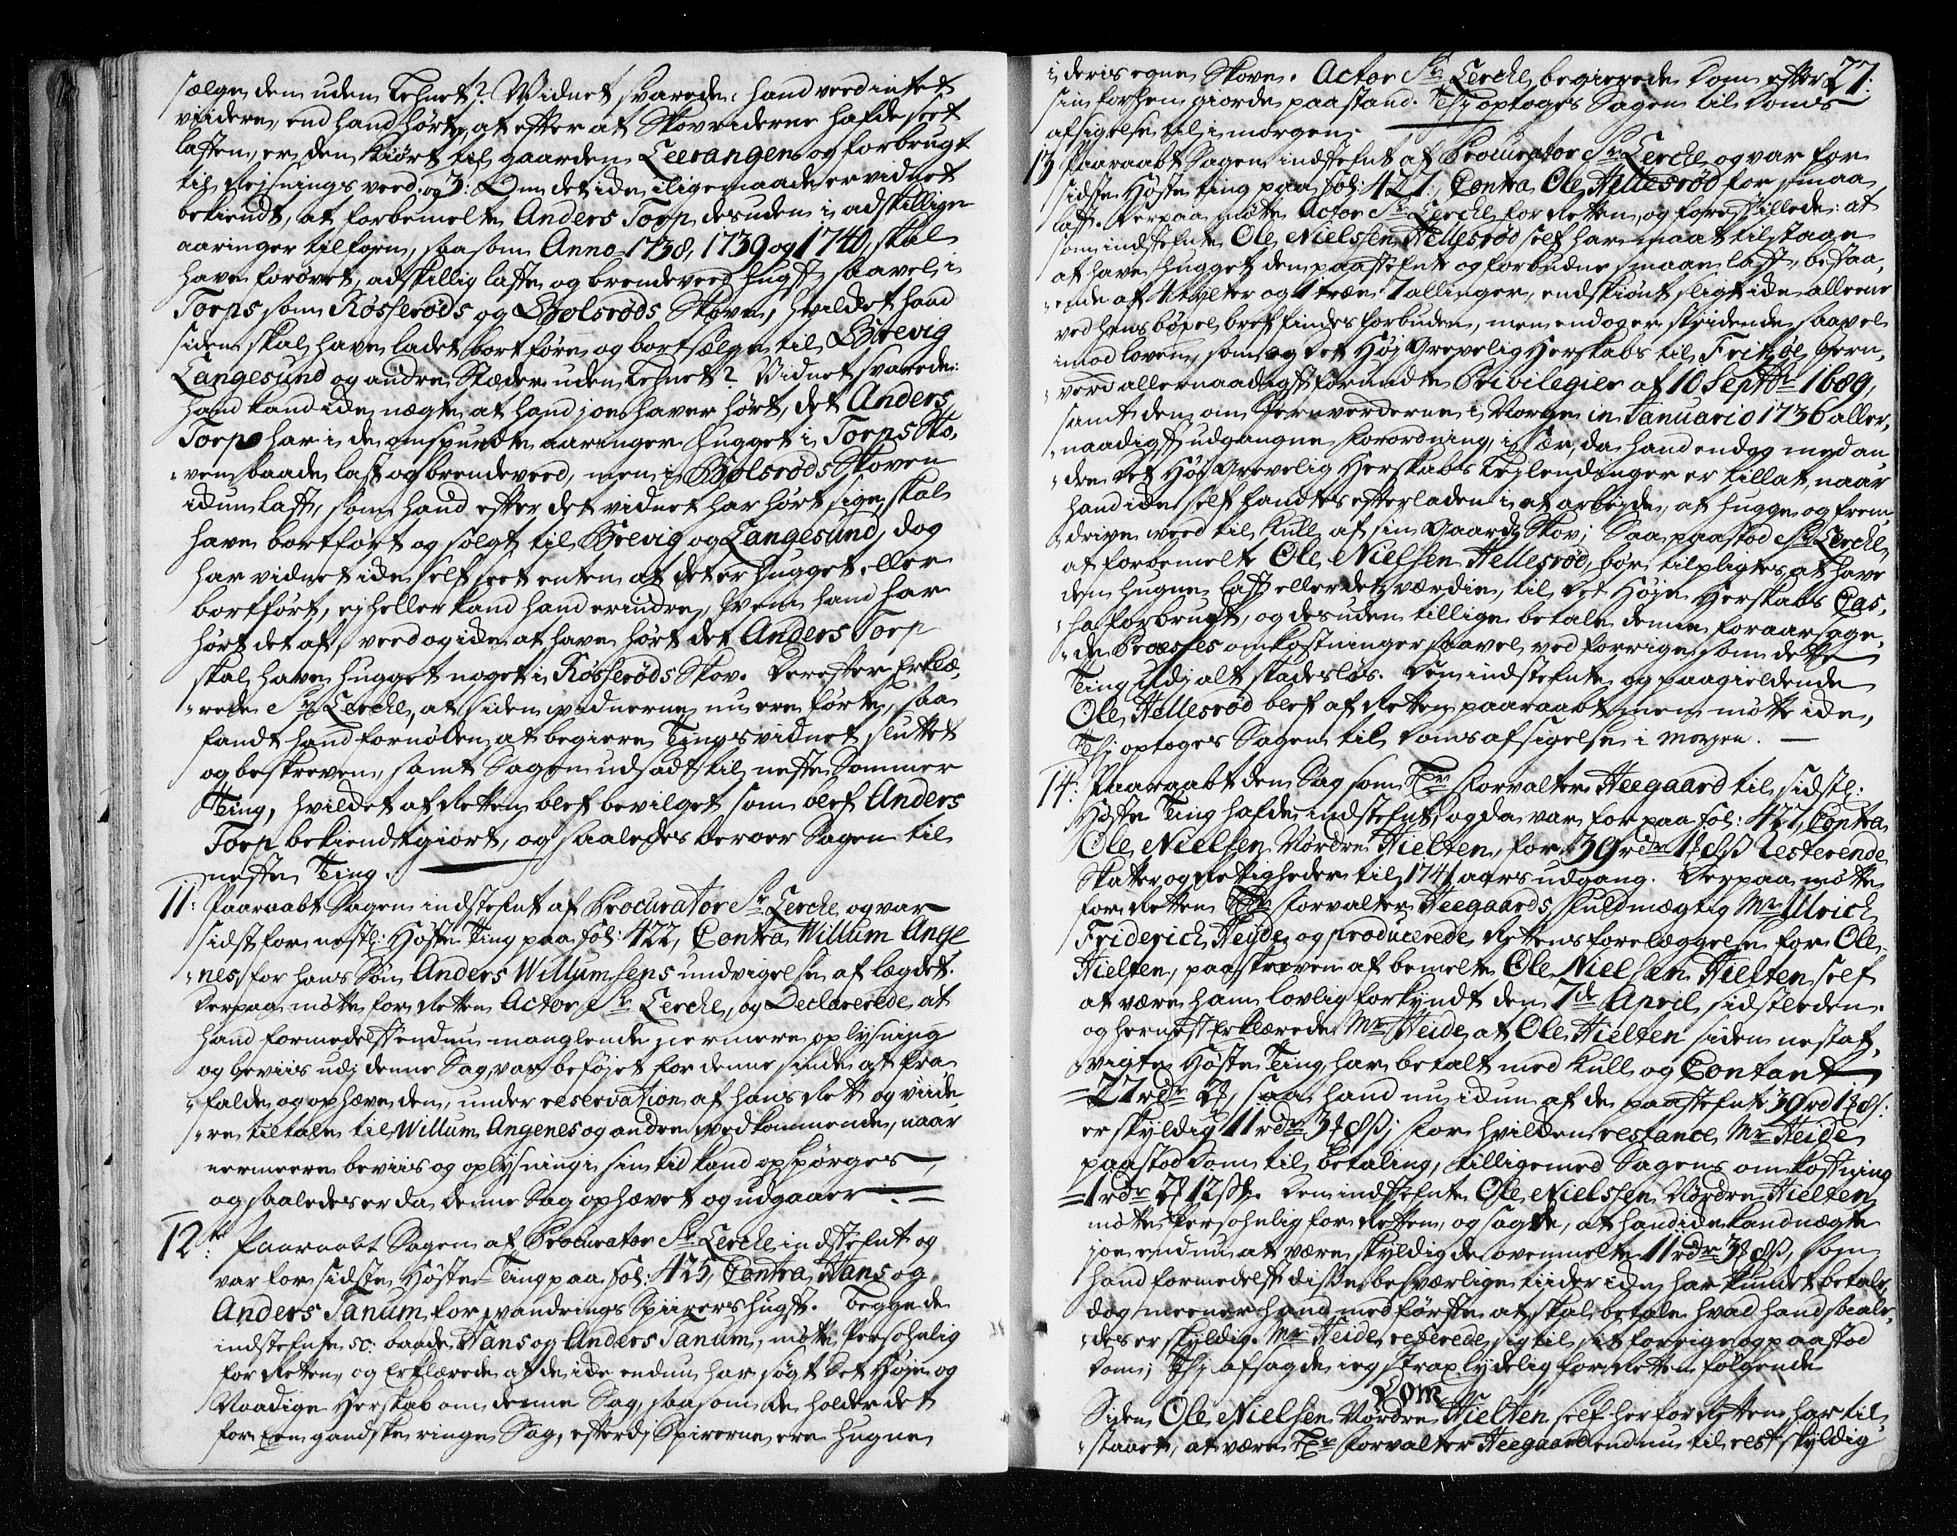 sælge dem uden Tehnet? Vidnet svarede: hand veed intet
viidere, end hand hørte, at efter at Skovriderne hafde seet
lasten, er den kiørt til gaarden Leerangen og forbrugt
til Reisnings veed. og 3: Om det icke iligemaade er vidnet
bekiendt, at forbemelte Anders Torp desuden i adskillige
aaringer tilforn, saasom Anno 1738, 1739 og 1740, skal
have forøvet adskillig laste og brendeveed hugst saavel i
Torps som Røsserøds og Bolsrøds Skove, hvilcket hand
siden skal have ladet bortføre og bortsælge til Brevig
Langesund og andre Stæder uden Tehnet? Vidnet svarede:
hand kand icke nægte, at hand joe haver hørt, det Anders
Torp har i de omspurdte aaringer hugget i Torps Sko,
„ven baade last og brendeveed, men i Bolsrøds Skoven
ickun last, som hand efter det vidnet har hørt sige, skal
have bortført og solgt til Brevig og Langesund, dog
har vidnet icke self seet enten at det er hugget eller
bortført, ej heller kand hand erindre, hvem hand har
hørt det af, veed og icke at have hørt det Anders Torp
skal have hugget noget i Røsserøds Skov. Derefter Erklæ,
„rede Sr Lerche, at siden vidnerne nu ere førte, saa
fandt hand fornøden at begiere Tingsvidnet sluttet
og beskreven, samt Sagen udsadt til neste Sommer
Ting, hvilcket af Retten blef bevilget som blef Anders
Torp bekiendtgiort, og saaledes beroer Sagen til
neste Ting.
11: Paaraabt Sagen indstefnt af Procurator Sr Lerche og var
sidst for nestl: Høste Ting paa fol: 422, Contra Willum Ange
„nes, for hans Søn Anders Willumsens undvigelse af lægdet.
Derpaa møtte for Retten Actor Sr Lerche, og Declarerede, at
hand formedelst endnu manglende nermere oplysning
og beviis udj denne Sag, var beføjet for denne sinde at fra
„falde og ophæve den, under reservation af hans Rett og viide
„re tiltale til Willum Angenes og andre vedkommende, naar
nermeere beviis og oplysning i sin tid kand opspørges
og saaledes er da denne Sag ophævet og udgaaer
12te: Paaraabt Sagen af Procurator Sr Lerche indstefnt og
var for sidste Høste Ting paa fol: 425, Contra Hans og
Anders Tanum for vandrings Spiirers hugst. Begge de
indstefnte sc: baade Hans og Anders Tanum, møtte Persohnlig
for Retten, og Erklærede at de icke endnu har søgt Det Høje og
Naadige Herskab om denne Sag, saasom de holder det
for een gandske ringe Sag, efterdj Spirerne ere hugne
27.
i deris egne Skove. Actor Sr Lerche begierede Dom efter
sin forhen giorde paastand. Thj optoges Sagen til Doms
afsigelse til i morgen.
13 Paaraabt Sagen indstefnt af Procurator Sr Lerche og var for
sidste Høste ting paa fol: 427, Contra Ole Hellesrød for smaa
last. Derpaa møtte Actor Sr Lerche for Retten, og forestillede: at
som indstefnte Ole Nielssen Hellesrød self har maat tilstaae
at have hugget dem paastefnte og forbudne smaae last, bestaa,
„ende af 4 tylter og 1 træe 7 allinger, endskiønt sligt icke alleene
ved hans bøxel bref findes forbuden, men endog er stridende saavel
imod loven, som og det Høj Grevelig Herskabs til Fritzøe Jern,
„verck allernaadigst forundte Privilegier af 10 Septbr 1689,
samt dem om Jernverckerne i Norge in Januario 1736 aller,
„naadigst udgangne forordning, i sær, da hand endog med an,
„dre det Høj Grevelig Herskabs Lejlendinger er tillat, naar
hand icke self fandtes efterladen i at arbejde, at hugge og frem,
„drive veed til Kull af sin Gaards Skov; Saa paastod Sr Lerche
at forbemelte Ole Nielsen Hellesrød, bør tilpligtes at have
dem hugne last eller dets værdie, til det Høje Herskabs Cas,
„ha forbrudt, og desuden tillige betale denne foraarsage,
„de Processes omkostninger saavel ved forrige som dette
Ting udj alt skadesløs. Dem indstefnte og paagieldende
Ole Hellesrød blef af Retten paaraabt men møtte icke,
Thj optoges Sagen til Doms afsigelse i morgen.
14: Paaraabt den Sag som Hr Forvalter Heegaard til sidstl:
Høste Ting hafde indstefnt, og da var for paa fol: 427, Contra
Ole Nielsen Nordre Hielten, for 39 rdr 1 ₰ 8 ß Resterende
Skatter og Rettigheder til 1741 aars udgang. Derpaa møtte
for Retten Hr Forvalter Heegaards fuldmægtig Mr Ulrich
Friderich Heyde, og producerede Rettens forelæggelse for Ole
Hielten, paaskreven af bemelte Ole Nielsen Hielten self
at være ham lovlig forkyndt den 7de April sidstleden.
og hernest Erklærede Mr Heide, at Ole Hielten siden nestaf,
„vigte Høste Ting har betalt med Kull og Contant
27 rdr 2 ₰, saa hand nu ickun af de paastefnte 39 rd 1 ₰ 8 ß:
er skyldig 11 rdr 3 ₰ 8 ß; for hvilcken restance Mr Heide
paastod Dom til betaling, tilligemed Sagens omkostning
1 rdr 2 ₰ 12 ß. Dem indstefnte Ole Nielssen Nordre Hielten
møtte Persohnlig for Retten, og sagde, at hand icke kand nægte
joe endnu at være skyldig de ovenmelte 11 rdr 3 ₰ 8 ß, som
hand formedelst disse besværlige tiider icke har kundet betale,
dog meener hand med første at skal betale hvad hand saale,
„des er skyldig. Mr Heide refererede sig til sit forrige og paastod
Dom; Thj afsagde ieg strax lydelig for Retten følgende
Dom
Siden Ole Nielsen Nordre Hielten self her for Retten har til,
„staaet, at være Hr Forvalter Heegaard endnu til rest skyldig